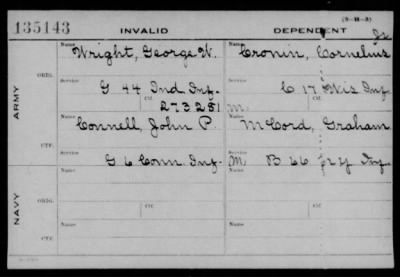 (3-H-3)
135143 INVALID DEPENDENT
Jr
ARMY
ORIG.
Name Wright, George W. Name Cronin, Cornelius
Service G 44 Ind Inf. Service C 17 Wis Inf
Ctf. 273281 Ctf. M.
CTF.
Name Connell, John P. Name McCord, Graham
Service G 6 Conn Inf. Service M B 66 Inf
NAVY
ORIG.
Name Name
Ctf. Ctf.
CTF.
Name Name